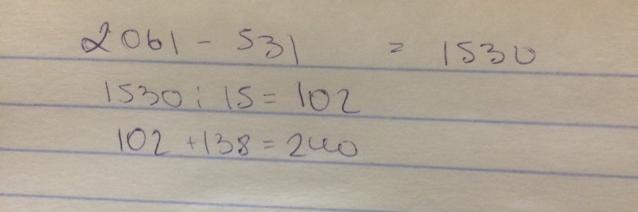 2061 - 531 = 1530
1530 : 15 = 102
102 + 138 = 240